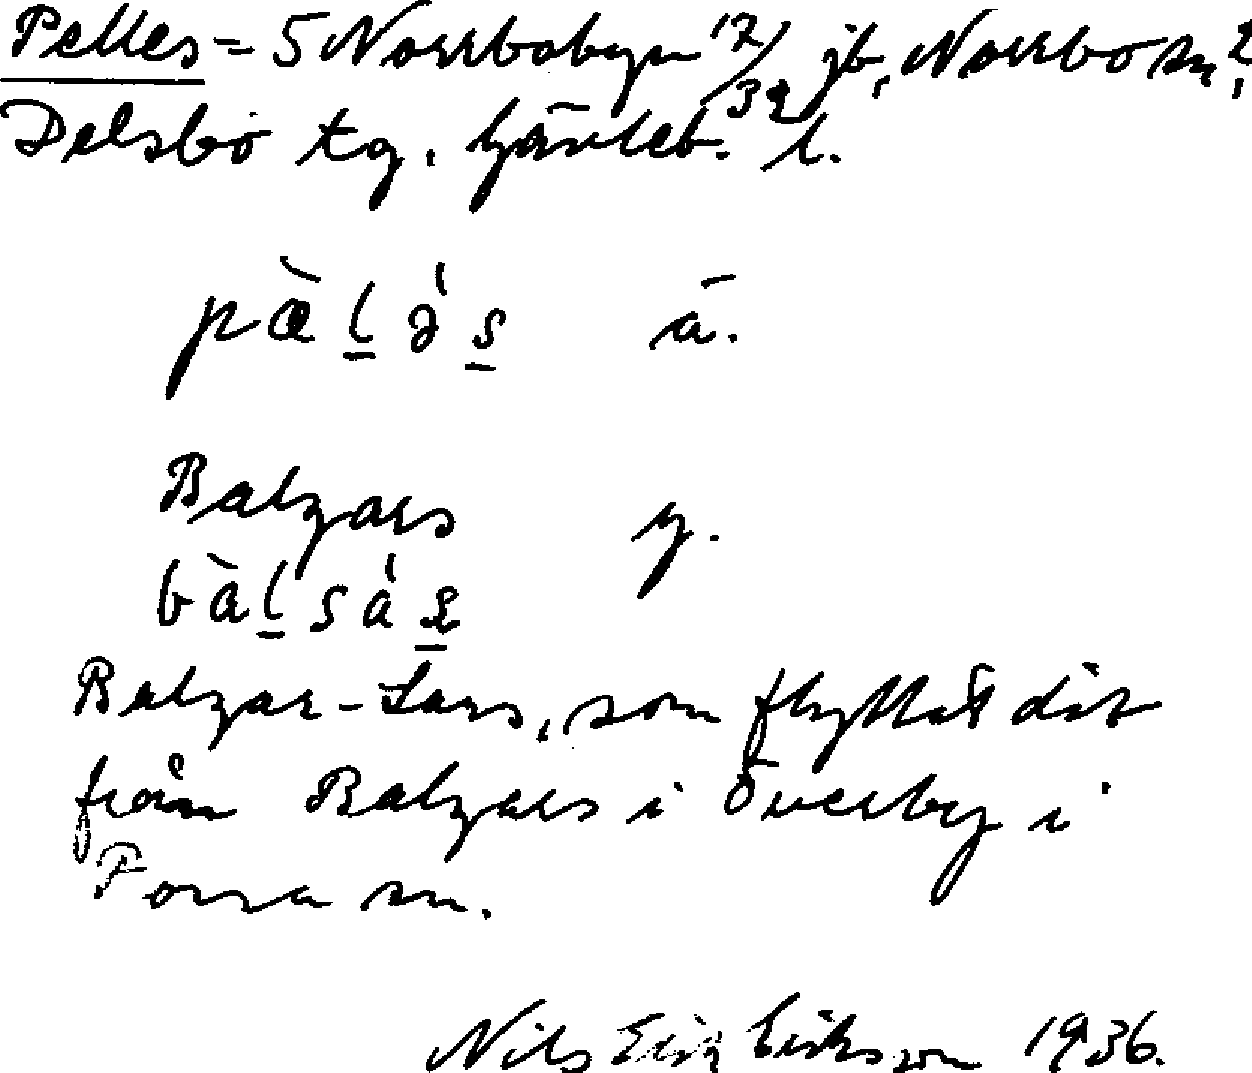 Pelles = 5 Norrbobyn 17/32 jb, Norrbo sn?,
Delsbo tg. Gävleb. l.
pæ̀lə̀s ä.
Balzars y.
bàlsàs
Balzar-Lars, som flyttat dit
från Balzars i Överby i
Forsa sn.
Nils Erik Eriksson 1936.